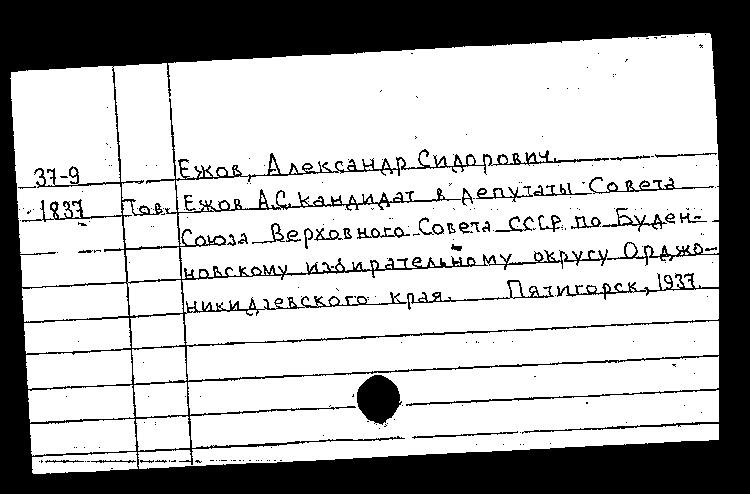 37-9 Ежов, Александр Сидорович.
1837 Тов. Ежов А.С. кандидат в депутаты Совета
Союза Верховного Совета СССР по Буден-
новскому избирательному округу Орджо-
никидзевского края. Пятигорск, 1937.